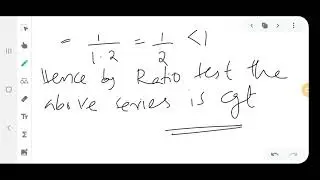 = 1/1·2 = 1/2 < 1
Hence by Ratio test the
above series is cgt